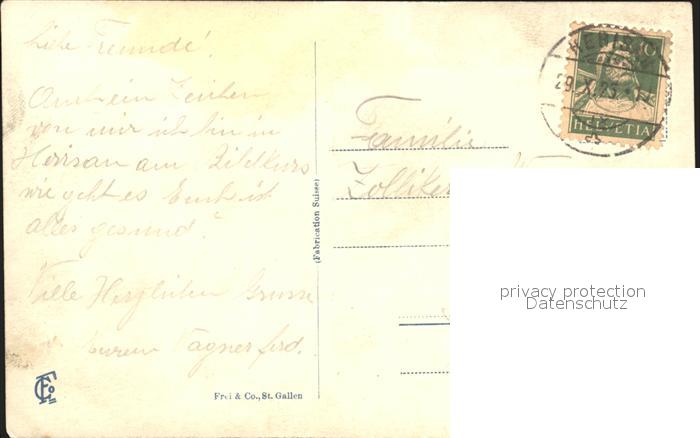 Liebe Freunde!
Auch ein Zeichen
von mir ich bin in
Herisau am
wie geht es Euch ist
alles gesund?
Viele Herzlichen Grüsse
Eurem Wagner ferd.
Frei & Co., St. Gallen
(Fabrication Suisse)
Familie
HELVETIA
10
29.X.
privacy protection
Datenschutz